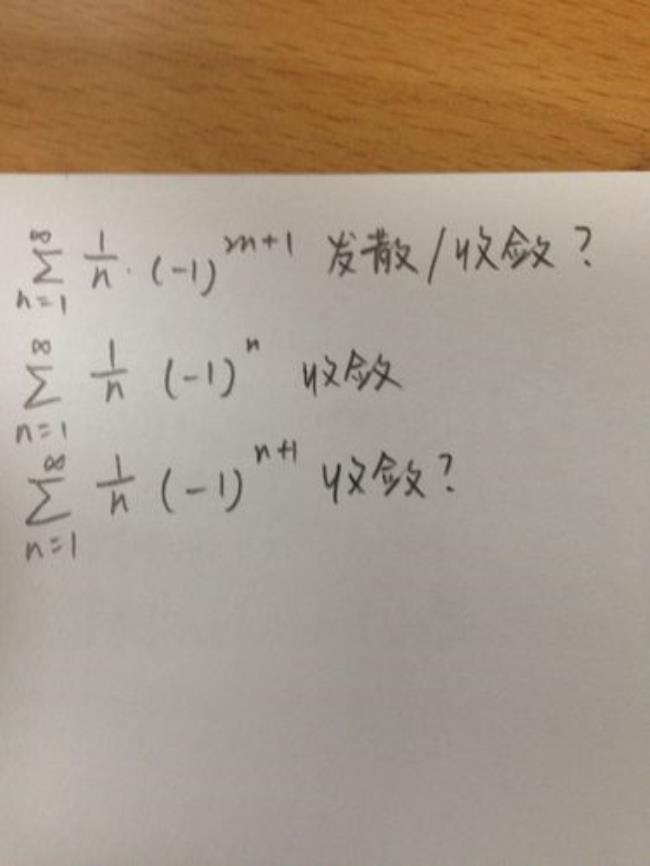 ∞∑n=1 1/n · (-1)^2n+1 发散/收敛?
∞∑n=1 1/n (-1)^n 收敛
∞∑n=1 1/n (-1)^n+1 收敛?